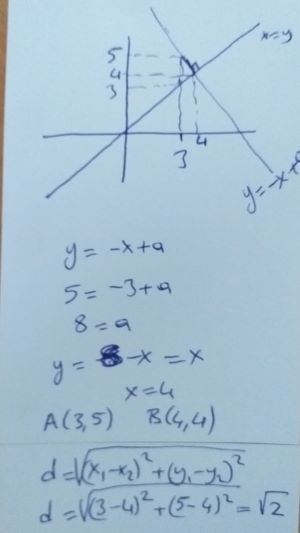 x=y
5
4
3
3 4
y=-x+8
y = -x+a
5 = -3+a
8 = a
y = 8-x = x
x=4
A(3,5) B(4,4)
d=√(x₁-x₂)²+(y₁-y₂)²
d=√(3-4)²+(5-4)² = √2